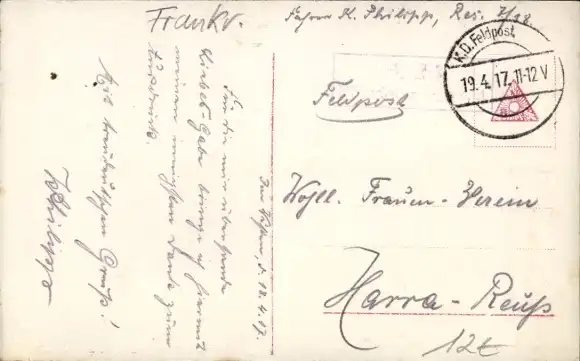 Frankr.
Fahrer K. Philipp, Res. 7/18.
K.D. Feldpost
19.4.17.11-12V
Feldpost
Im Westen, d. 18.4.17.
Für die mir übersandte
Liebes-Gabe bringe ich hiermit
meinen innigsten Dank zum
Ausdruck.
Mit treudeutschem Gruß!
Philipp
Wohll. Frauen-Verein
Harra-Reuß
12t